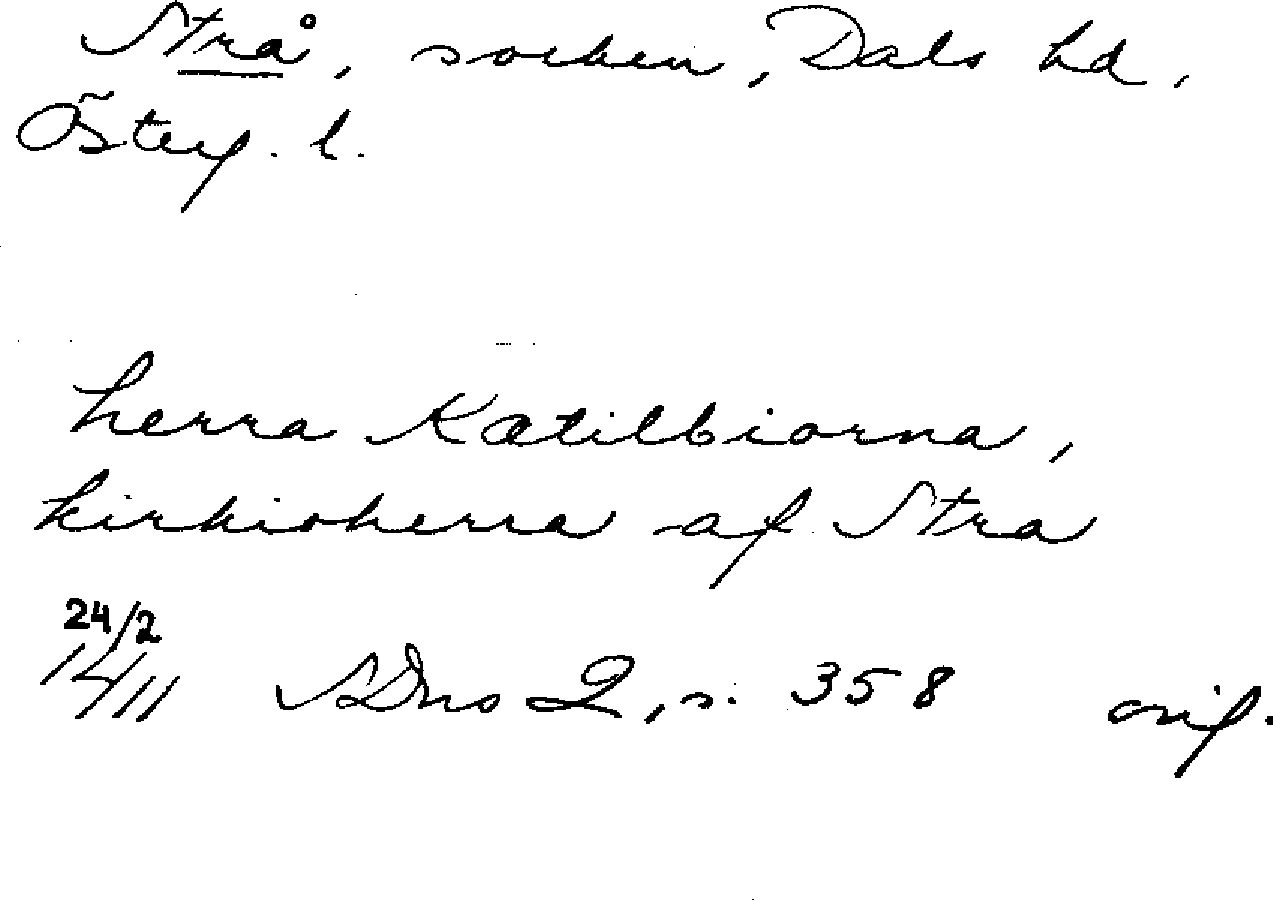 Strå, socken, Dals hd,
Österg. l.
herra Kætilbiorna,
kirkioherra af Stra
24/2
1411 SDns 2, s. 358 orig.